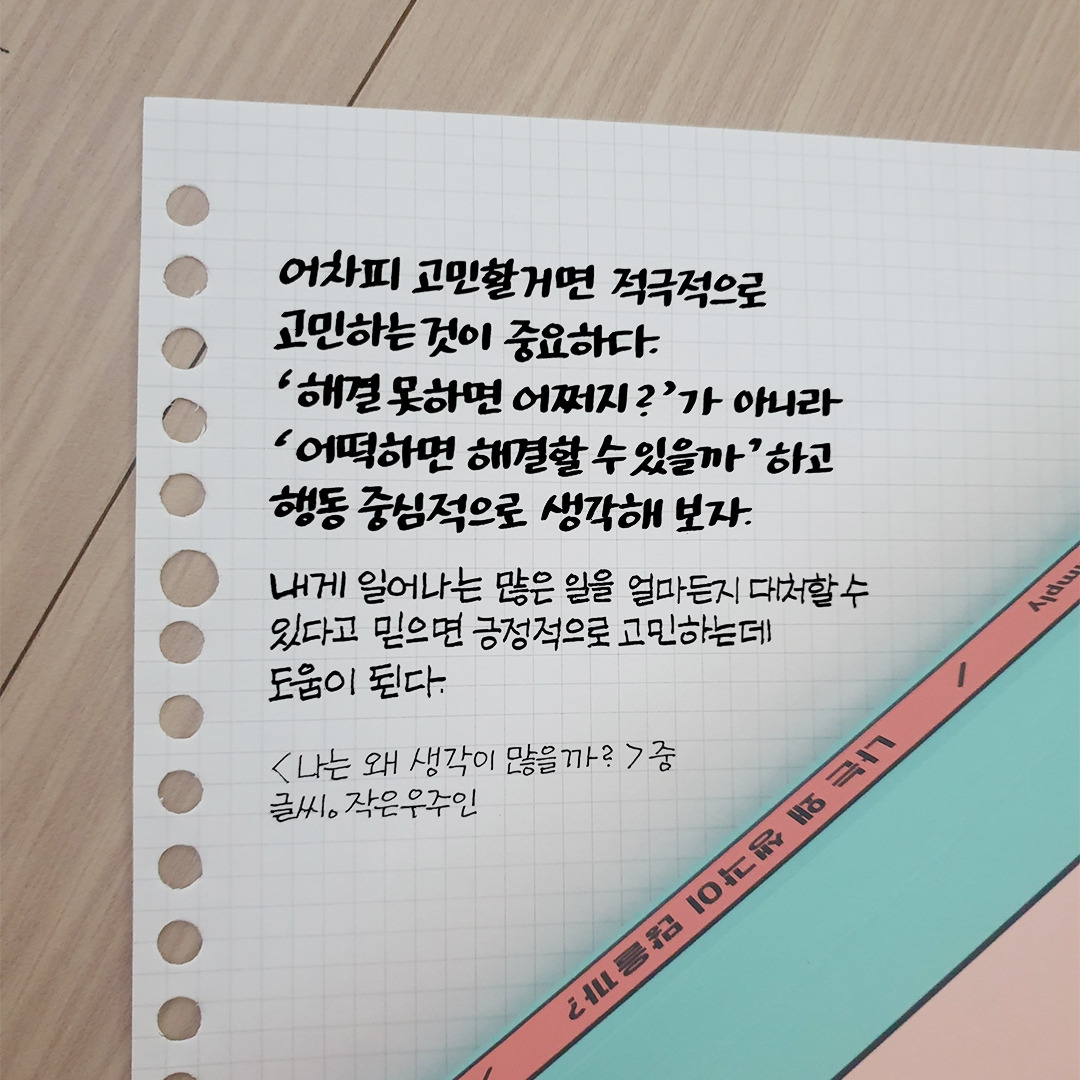 어차피 고민할거면 적극적으로
고민하는것이 중요하다.
‘해결 못하면 어쩌지?’가 아니라
‘어떡하면 해결할 수 있을까’하고
행동 중심적으로 생각해 보자.
내게 일어나는 많은 일을 얼마든지 대처할 수
있다고 믿으면 긍정적으로 고민하는데
도움이 된다.
<나는 왜 생각이 많을까?>중
글씨。작은우주인
나는 왜 생각이 많을까?